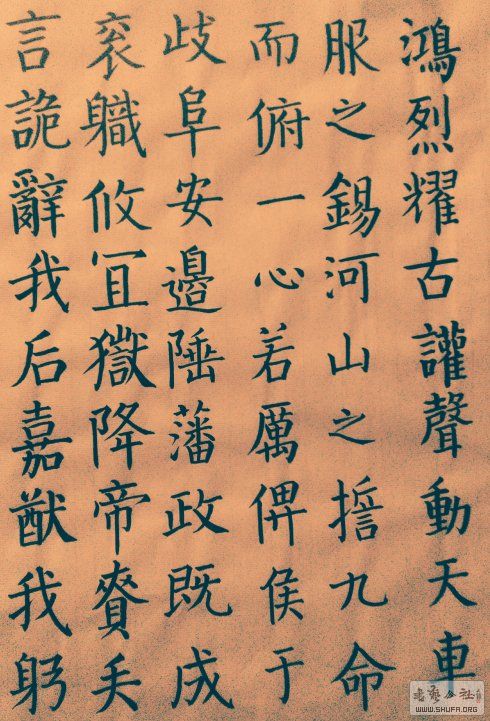 鴻烈耀古讙聲動天車
服之錫河山之九命
而俯一心若厲俾侯于
歧阜安邉陲藩政既成
衮職攸冝獄降帝賚
言詭辭我后嘉猷我躬
書藝公社
WWW.SHUFA.ORG